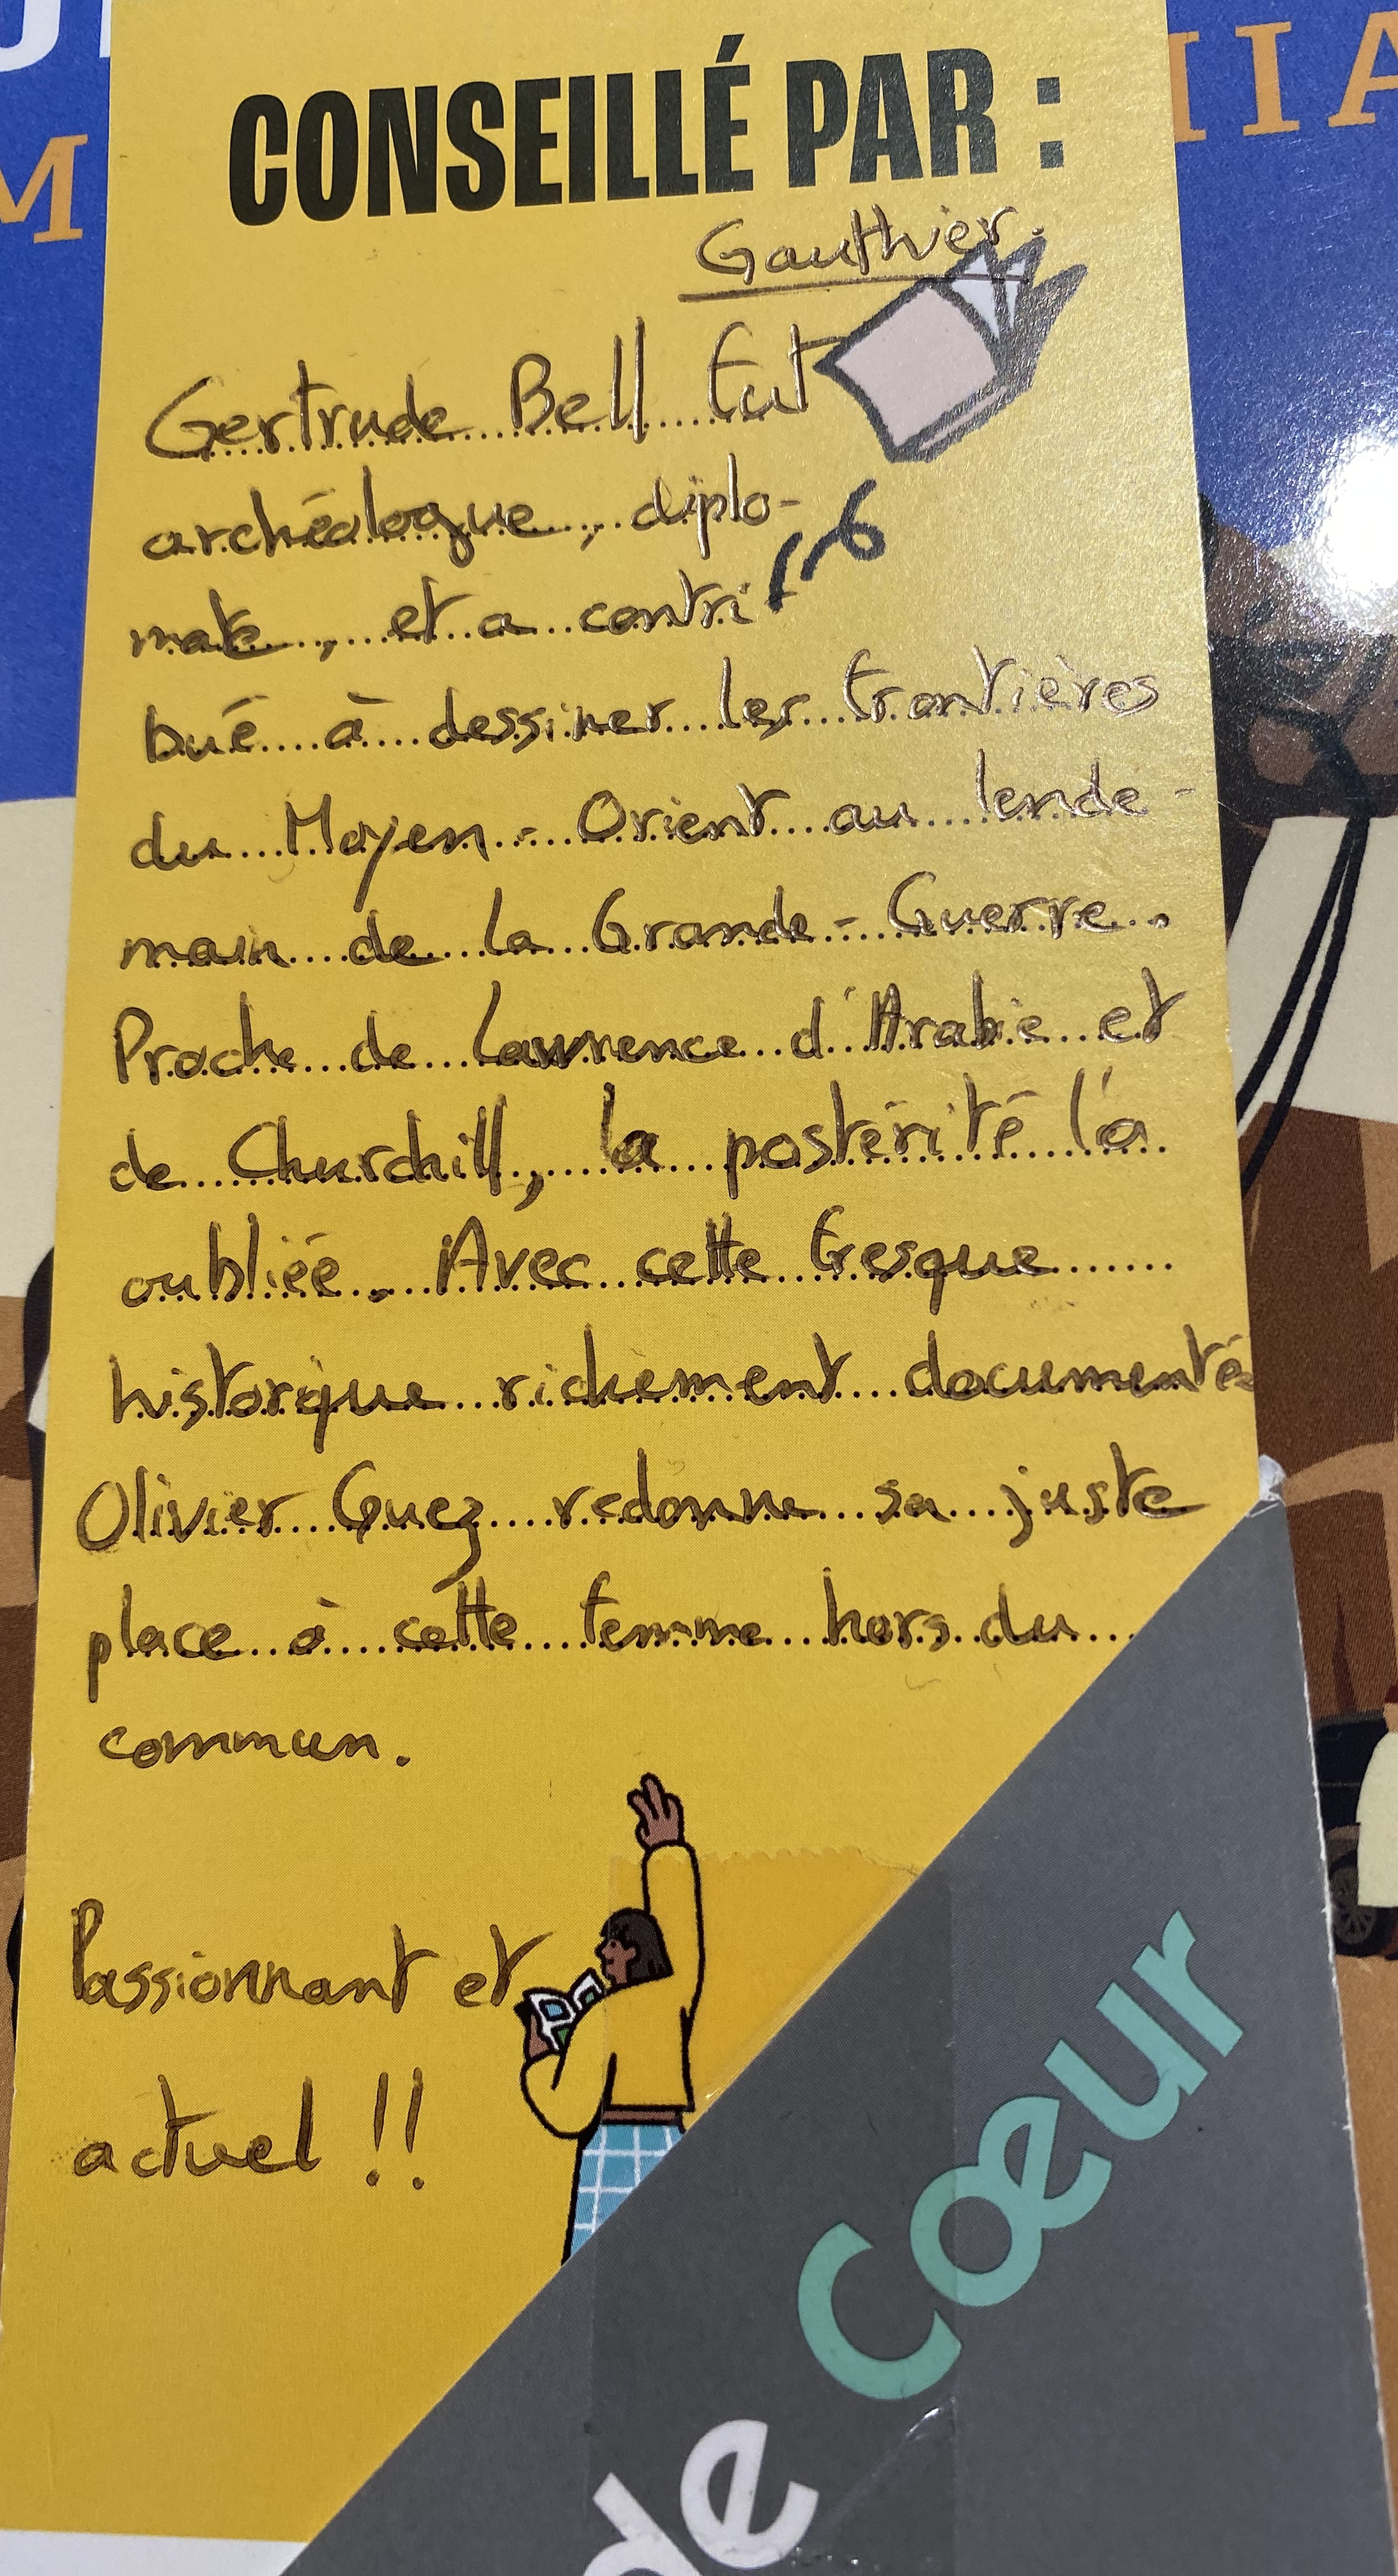 CONSEILLÉ PAR :
Gauthier.
Gertrude Bell fut
archéologue, diplo-
mate, et a contri
bué à dessiner les frontières
du Moyen-Orient au lende-
main de la Grande-Guerre.
Proche de Lawrence d'Arabie et
de Churchill, la postérité l'a
oubliée. Avec cette fresque
historique richement documentée
Olivier Guez redonne sa juste
place à cette femme hors du
commun.
Passionnant et
actuel !!
de cœur